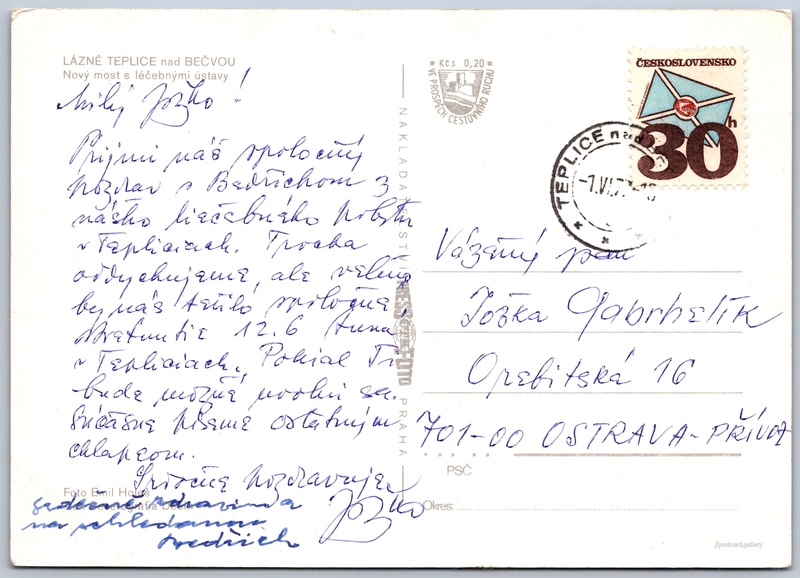 LÁZNĚ TEPLICE nad BEČVOU
Nový most s léčebnými ústavy
Milý Jožko!
Prijmi náš spoločný
pozdrav s Bedřichom z
nášho liečebného pobytu
v Tepliciach. Trocha
oddychujeme, ale velmi
by nás tešilo spoločne
stretnutie 12.6 tuna
v Tepliciach. Pokial Ti
bude možné uvolni sa.
Súčasne píšeme ostatným
chlapcom.
Srdečne pozdravuje
Jožko
Foto Emil
na shledanou
Bedřich
NAKLADATELSTVÍ
PRAHA
Kčs 0,20
VE PROSPĚCH CESTOVNÍHO RUCHU
ČESKOSLOVENSKO
30h
TEPLICE nad
-1.VI.
Vážený pan
Jožka Gabrhelík
Orebitská 16
701-00 OSTRAVA-PŘÍVOZ
PSČ
Okres: